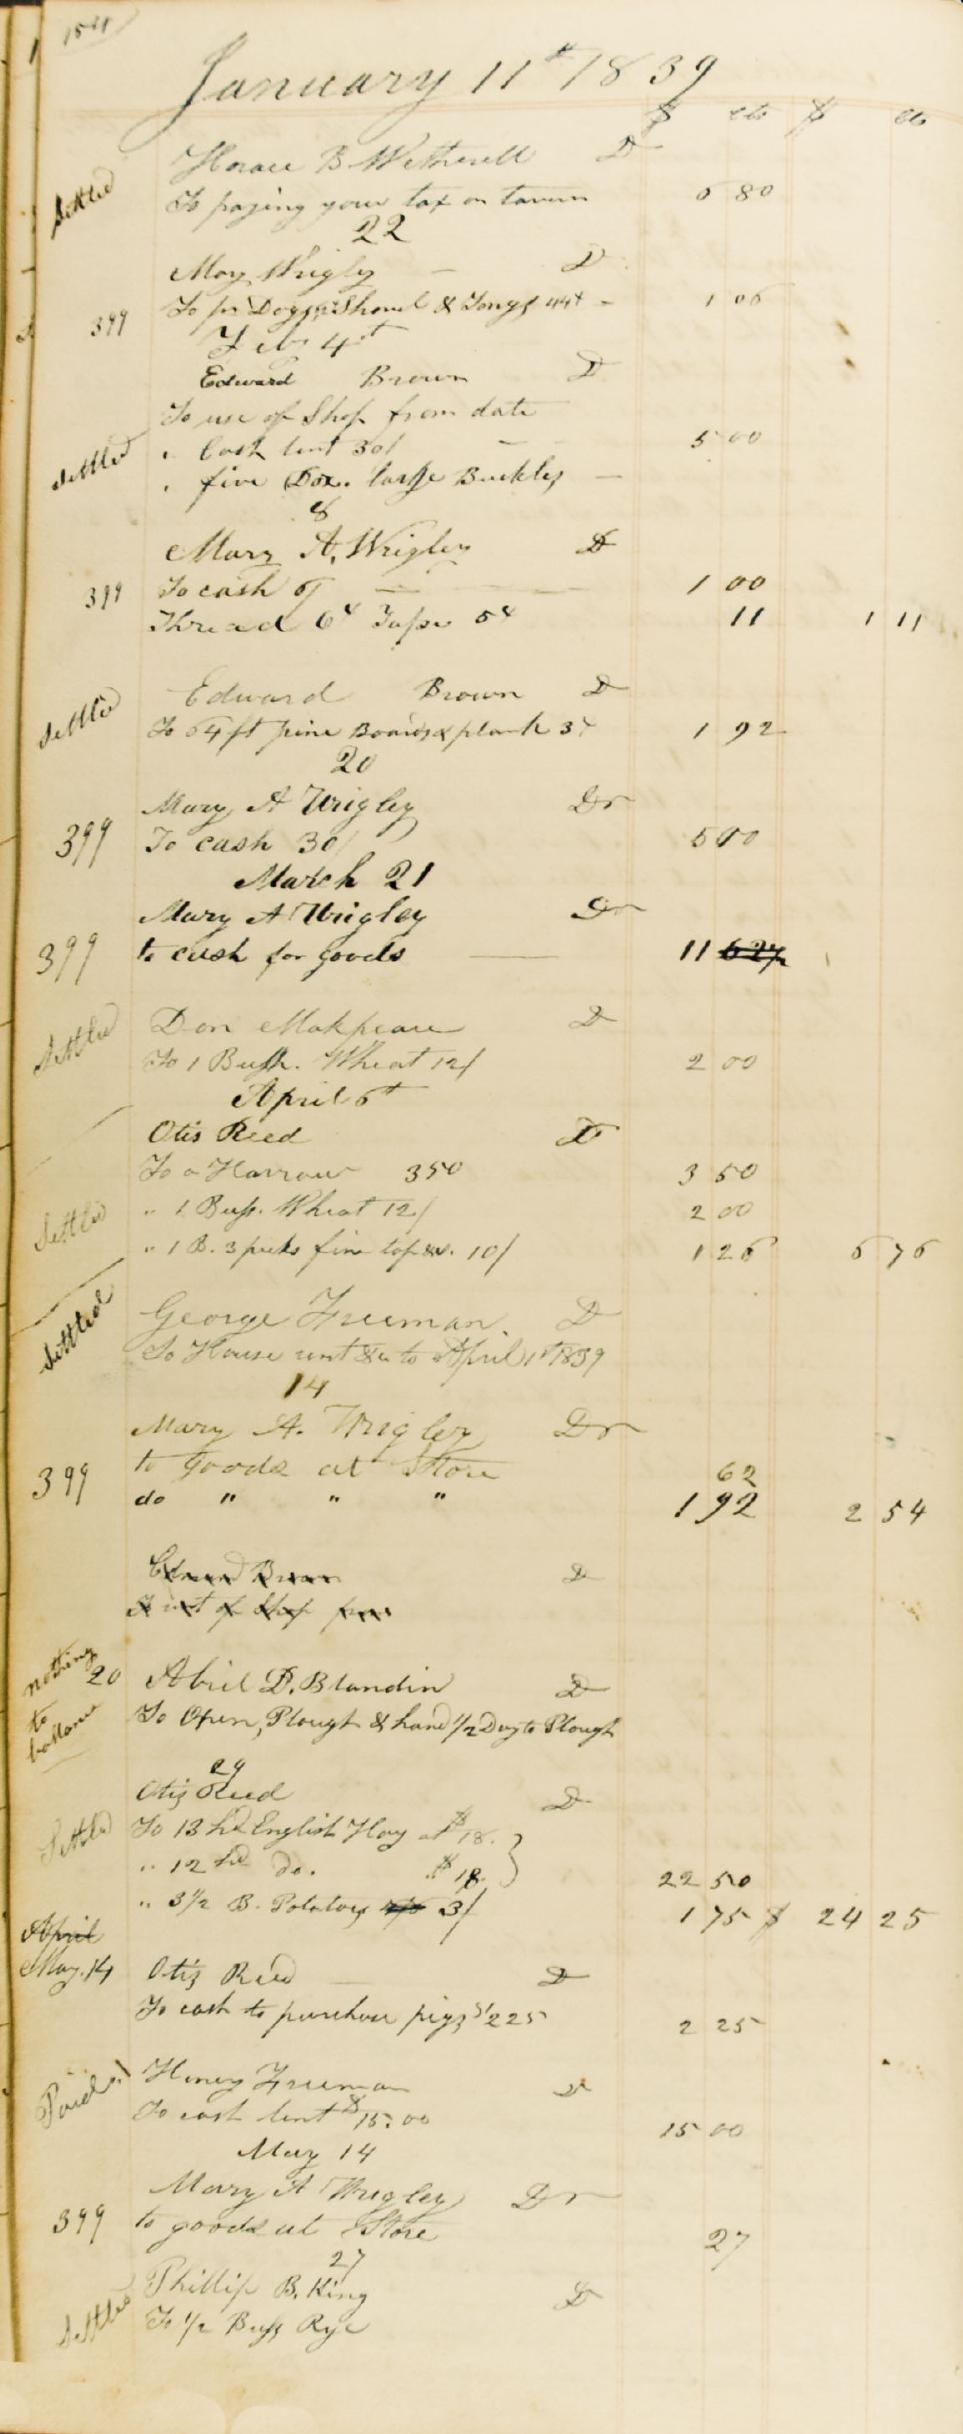 January 11th 1839
$ cts $ cts
Horace B Wetherell D
Settled To paying your tax on tavern 0 80
22
May Wrigley D
399 To pr Dogs, Shovel & Tongs 1 06
Feb 4th
Edward Brown D
To use of Shop from date
Settled " Cash lent 30/ 5 00
" five Doz. large Buckles
8
Mary A, Wrigley D
399 To cash 6/ 1 00
Thread 6cts Tape 5cts 11 1 11
Settled Edward Brown D
To 64 ft pine Boards & plank 3cts 1 92
20
Mary A Wrigley Dr
399 To cash 30/ 5 00
March 21
Mary A Wrigley Dr
399 to cash for goods 11 62½
Settled Don Makpeace D
To 1 Bush. Wheat 12/ 2 00
April 6th
Otis Reed D
To a Harrow 350 3 50
Settled " 1 Bush. Wheat 12/ 2 00
" 1 B. 3 pecks fine top 10/ 1 26 6 76
Settled George Freeman. D
To House rent &c to April 1st 1839
14
Mary A. Wrigley Dr
399 to goods at Store 62
do " " " 1 92 2 54
Edward Brown D
To use of Shop from
nothing to ballance
20 Abiel D. Blandin D
To Oxen, Plough & hand 1/2 Day to Plough
29
Otis Reed D
Settled To 13 hd English Hay at $18.
" 12 hd do. $18. 22 50
" 3½ B. Potatoes 3/ 1 75 $ 24 25
April
May. 14 Otis Reed D
To cash to purchase pigs $2 25 2 25
Paid Henry Freeman D
To cash lent $15.00 15 00
May 14
Mary A Wrigley Dr
399 to goods at Store 27
27
Phillip B. King D
Settled To 1/2 Bush Rye